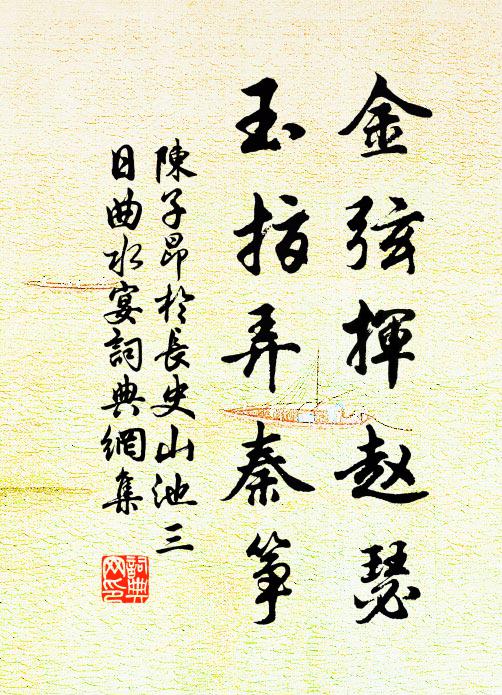 金弦揮赵瑟
玉指弄秦筝
陳子昂於長史山池三
日曲水宴詞典網集
詞典
网印